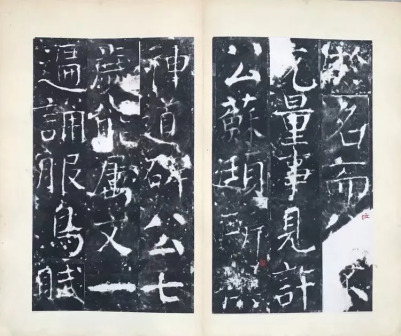 於名而不
充量事見許
公蘇頲所
神道碑公七
歲能屬文一
遍誦服鳥賦